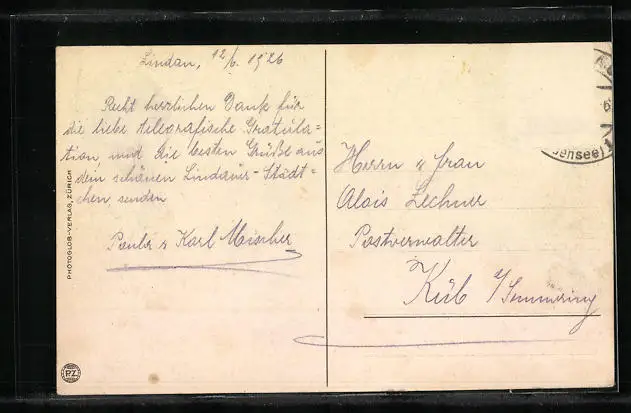 Lindau, 12/6. 1926
Recht herzlichen Dank für
die liebe telegrafische Gratula=
tion und die besten Grüße aus
dem schönen Lindauer-Städt=
chen, senden
Karl Mischer
Herrn u Frau
Alois Lechner
Postverwalter
Küb a/Semmering
PHOTOGLOB-VERLAG, ZÜRICH
PZ
densee)